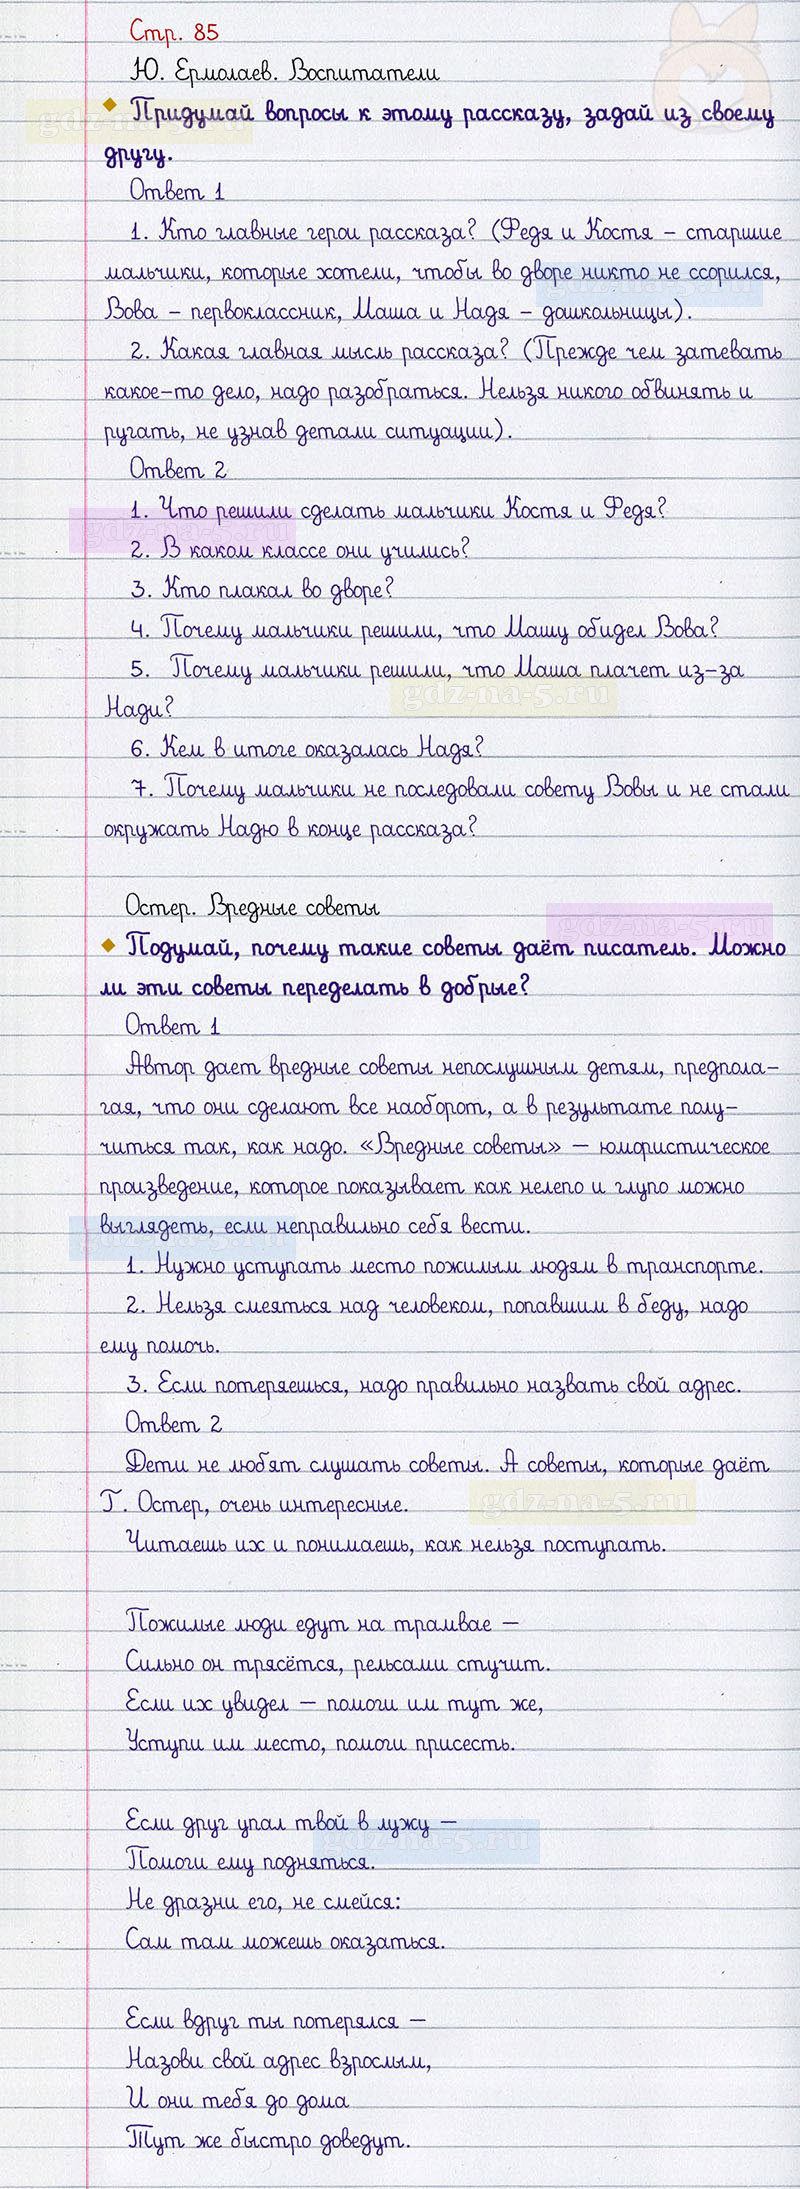 Стр. 85
Ю. Ермолаев. Воспитатели
Придумай вопросы к этому рассказу, задай из своему
другу.
Ответ 1
1. Кто главные герои рассказа? (Федя и Костя – старшие
мальчики, которые хотели, чтобы во дворе никто не ссорился,
Вова – первоклассник, Маша и Надя – дошкольницы).
2. Какая главная мысль рассказа? (Прежде чем затевать
какое-то дело, надо разобраться. Нельзя никого обвинять и
ругать, не узнав детали ситуации).
Ответ 2
1. Что решили сделать мальчики Костя и Федя?
2. В каком классе они учились?
3. Кто плакал во дворе?
4. Почему мальчики решили, что Машу обидел Вова?
5. Почему мальчики решили, что Маша плачет из-за
Нади?
6. Кем в итоге оказалась Надя?
7. Почему мальчики не последовали совету Вовы и не стали
окружать Надю в конце рассказа?
Остер. Вредные советы
Подумай, почему такие советы даёт писатель. Можно
ли эти советы переделать в добрые?
Ответ 1
Автор дает вредные советы непослушным детям, предпола-
гая, что они сделают все наоборот, а в результате полу-
читься так, как надо. «Вредные советы» — юмористическое
произведение, которое показывает как нелепо и глупо можно
выглядеть, если неправильно себя вести.
1. Нужно уступать место пожилым людям в транспорте.
2. Нельзя смеяться над человеком, попавшим в беду, надо
ему помочь.
3. Если потеряешься, надо правильно назвать свой адрес.
Ответ 2
Дети не любят слушать советы. А советы, которые даёт
Г. Остер, очень интересные.
Читаешь их и понимаешь, как нельзя поступать.
Пожилые люди едут на трамвае —
Сильно он трясётся, рельсами стучит.
Если их увидел — помоги им тут же,
Уступи им место, помоги присесть.
Если друг упал твой в лужу —
Помоги ему подняться.
Не дразни его, не смейся:
Сам там можешь оказаться.
Если вдруг ты потерялся —
Назови свой адрес взрослым,
И они тебя до дома
Тут же быстро доведут.
gdz-na-5.ru
gdz-na-5.ru
gdz-na-5.ru
gdz-na-5.ru
gdz-na-5.ru
gdz-na-5.ru
gdz-na-5.ru
gdz-na-5.ru